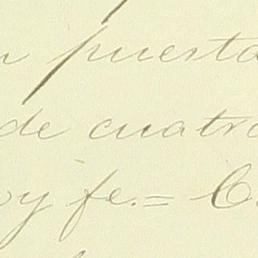 puesta
de cuatro
fe.=